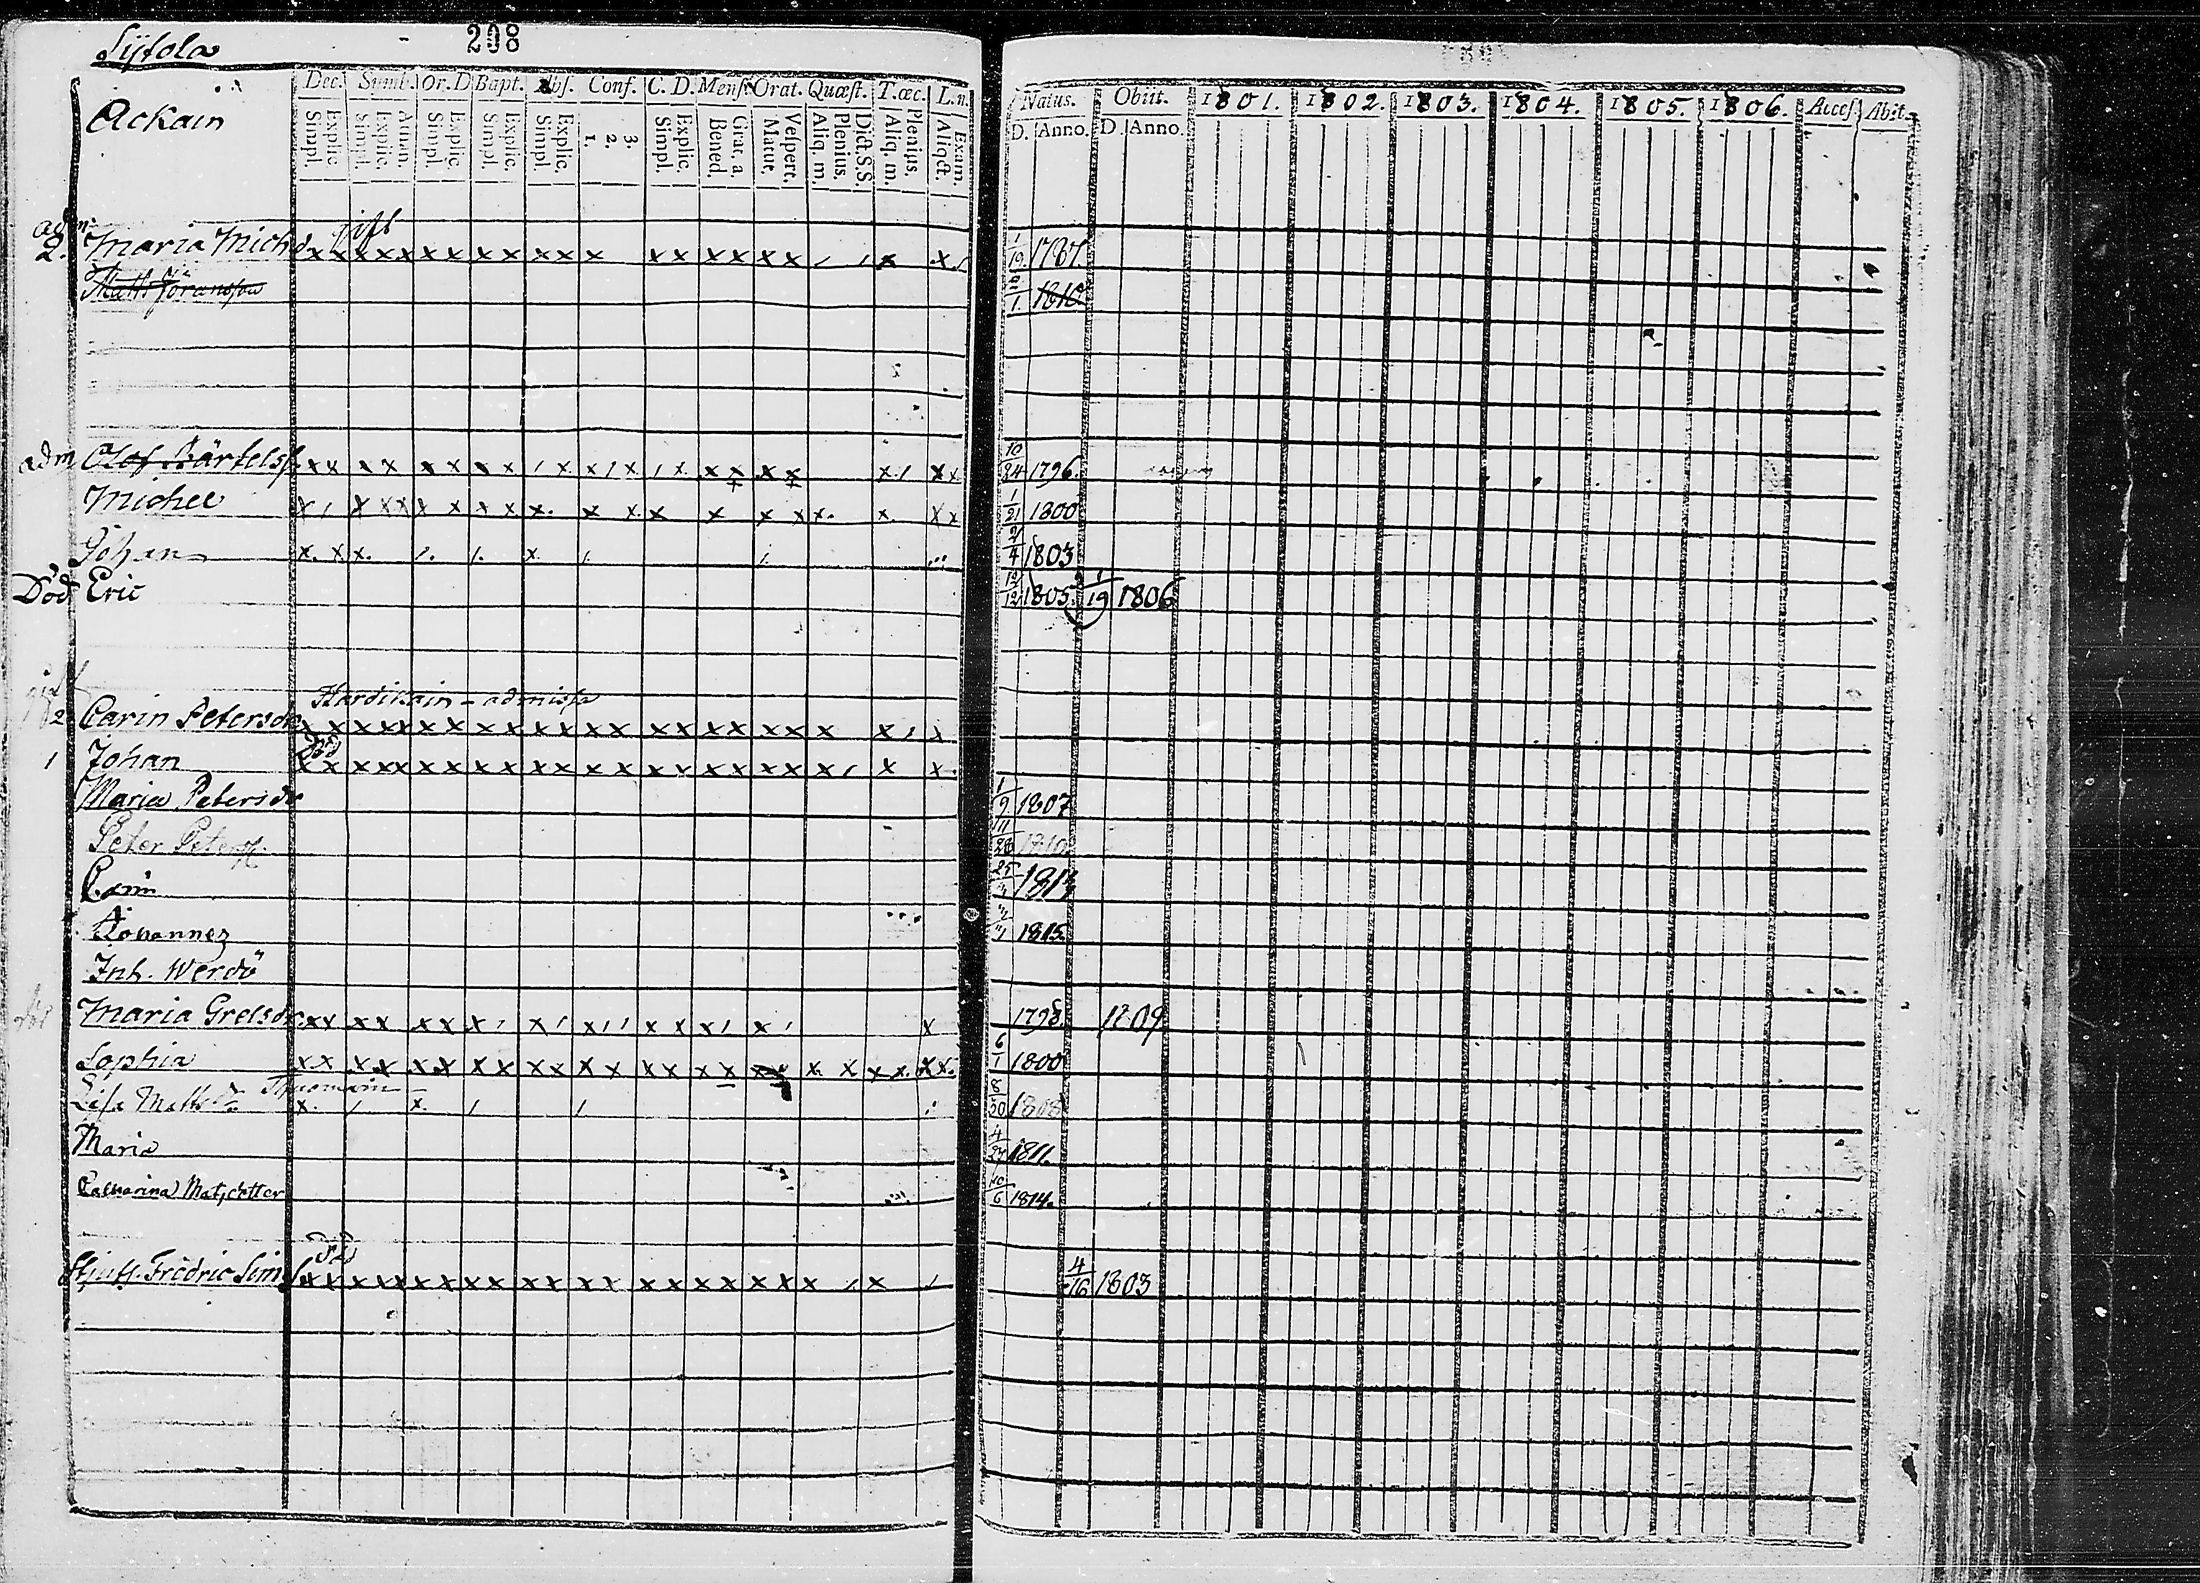 Sijtola 208
Dec. Symb. Or. D Bapt. Abs. Conf. C. D. Mensæ Orat. Quæst. T. œc. L. n.
Ackain
Simpl. Explic. Simpl. Explic. Athan. Simpl. Explic. Simpl. Explic. Simpl. Explic. 1. 2. 3. Simpl. Explic. Bened. Grat. a Matut. Vespert. Aliq. m. Plenius. Dict. S. S. Aliq. m. Plenius. Aliqćt. Exam.
Natus. Obiit. 1801. 1802. 1803. 1804. 1805. 1806. Access Abit.
D. Anno. D Anno.
adm: gift
2. Maria Michsdr x x x x x x x x x x x x x x x x x x x / / x x / 1/19 1787.
Matts Göransson 1. 1810
adm Olof Bärtelss. x x x x x x x x / x x / x / x x x x x x / x x 10/24 1796.
Michel x / x x x x x x x x. x x. x x x x x. x. x x 1/21 1800
Johan x. x x. /. /. x. /. /. 2/4 1803
Död Eric 12/12 1805. 1/19 1806
gift Hardikain - admissa
2 Carin Petersdr x x x x x x x x x x x x x x x x x x x x x / x
död
1 Johan x x x x x x x x x x x x x x x x x x x x / x x.
Maria Petersdr 1/9 1807
Peter Peterss. 11/28 1810
Carin 25 1813
Johannes 1815.
Inh. Werdö
Maria Grelsdr. x x x x x x x / x / x / / x x x / x / x 1798. 1809
Sophia x x x x x x x x x x x x x x x x x x x. x x x. x x. 6/1 1800
Thuomain
Lisa Mattsdr x. / x. / / 8/30 1808
Maria 4/27 1811.
Catharina Matzdotter 10/6 1814.
död
Skjutf. Fredric Sims. x x x x x x x x x x x x x x x x x x x x x / x / 4/16 1803